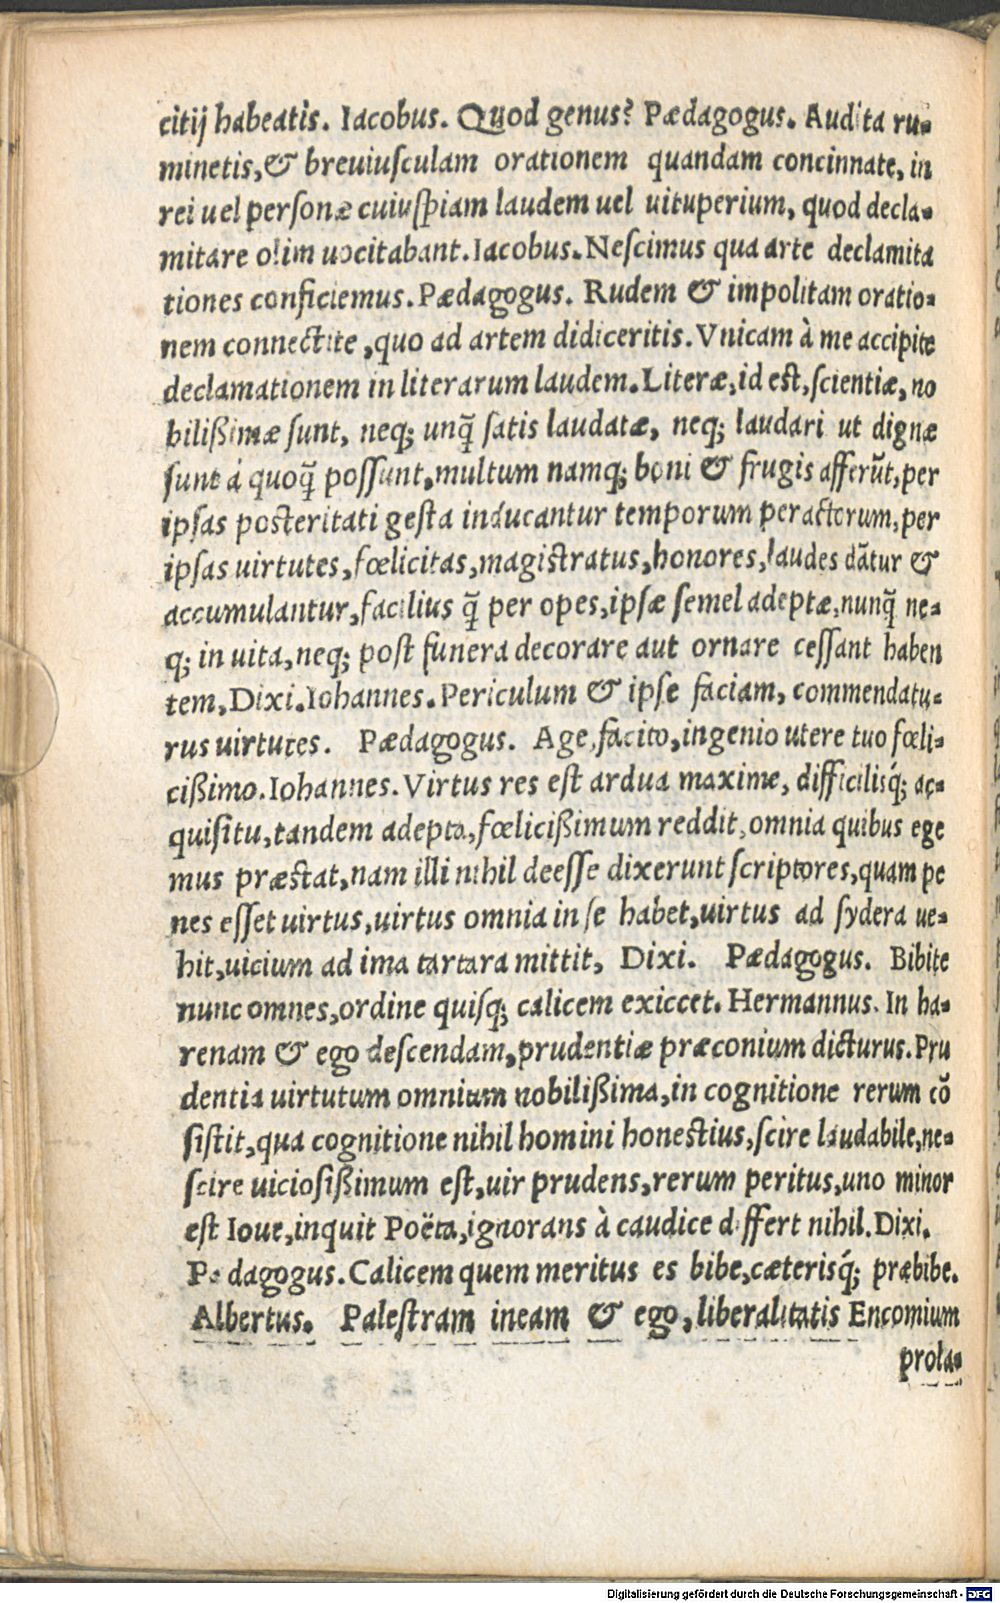 citij habeatis. Iacobus. Quod genus? Pædagogus. Audita ru-
minetis,& breuiusculam orationem quandam concinnate, in
rei uel personæ cuiuspiam laudem uel uituperium, quod decla-
mitare olim uocitabant. Iacobus. Nescimus qua arte declamita
tiones conficiemus. Pædagogus. Rudem & impolitam oratio-
nem connectite, quo ad artem didiceritis. Vnicam à me accipite
declamationem in literarum laudem. Literæ, id est, scientiæ, no
bilißimæ sunt, neq; unq̃ satis laudatæ, neq; laudari ut dignæ
sunt á quoq̃ possunt, multum namq; boni & frugis afferũt, per
ipsas posteritati gesta inducantur temporum peractorum, per
ipsas uirtutes, fœlicitas, magistratus, honores, laudes dãtur &
accumulantur, facilius q̃ per opes, ipsæ semel adeptæ, nunq̃ ne-
q; in uita, neq; post funera decorare aut ornare cessant haben
tem, Dixi. Iohannes. Periculum & ipse faciam, commendatu-
rus uirtutes. Pædagogus. Age, facito, ingenio utere tuo fœli-
cißimo. Iohannes. Virtus res est ardua maxime, difficilisq́; ac-
quisitu, tandem adepta, fœlicißimum reddit, omnia quibus ege
mus præstat, nam illi nihil deesse dixerunt scriptores, quam pe
nes esset uirtus, uirtus omnia in se habet, uirtus ad sydera ue-
hit, uicium ad ima tartara mittit, Dixi. Pædagogus. Bibite
nunc omnes, ordine quisq; calicem exiccet. Hermannus. In ha-
renam & ego descendam, prudentiæ præconium dicturus. Pru
dentia uirtutum omnium nobilißima, in cognitione rerum cõ
sistit, qua cognitione nihil homini honestius, scire laudabile, ne-
scire uiciosißimum est, uir prudens, rerum peritus, uno minor
est Ioue, inquit Poëta, ignorans à caudice differt nihil. Dixi.
Pædagogus. Calicem quem meritus es bibe, cæterisq́; præbibe.
Albertus. Palestram ineam & ego, liberalitatis Encomium
prola-
Digitalisierung gefördert durch die Deutsche Forschungsgemeinschaft - DFG